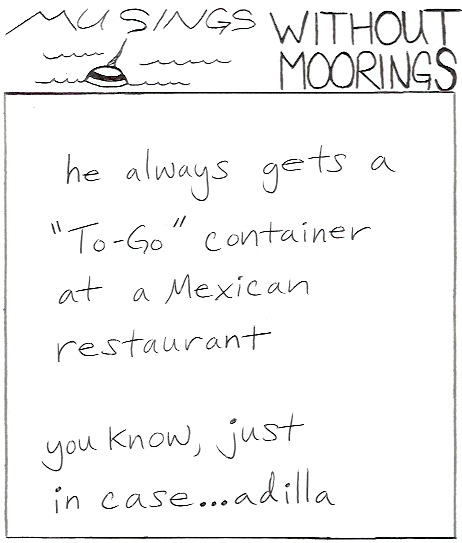 MUSINGS WITHOUT
MOORINGS
he always gets a
"To-Go" container
at a Mexican
restaurant
you know, just
in case...adilla